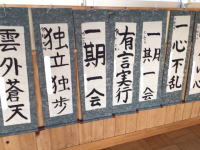 一心不乱
一期一会
有言実行
一期一会
独立独歩
雲外蒼天